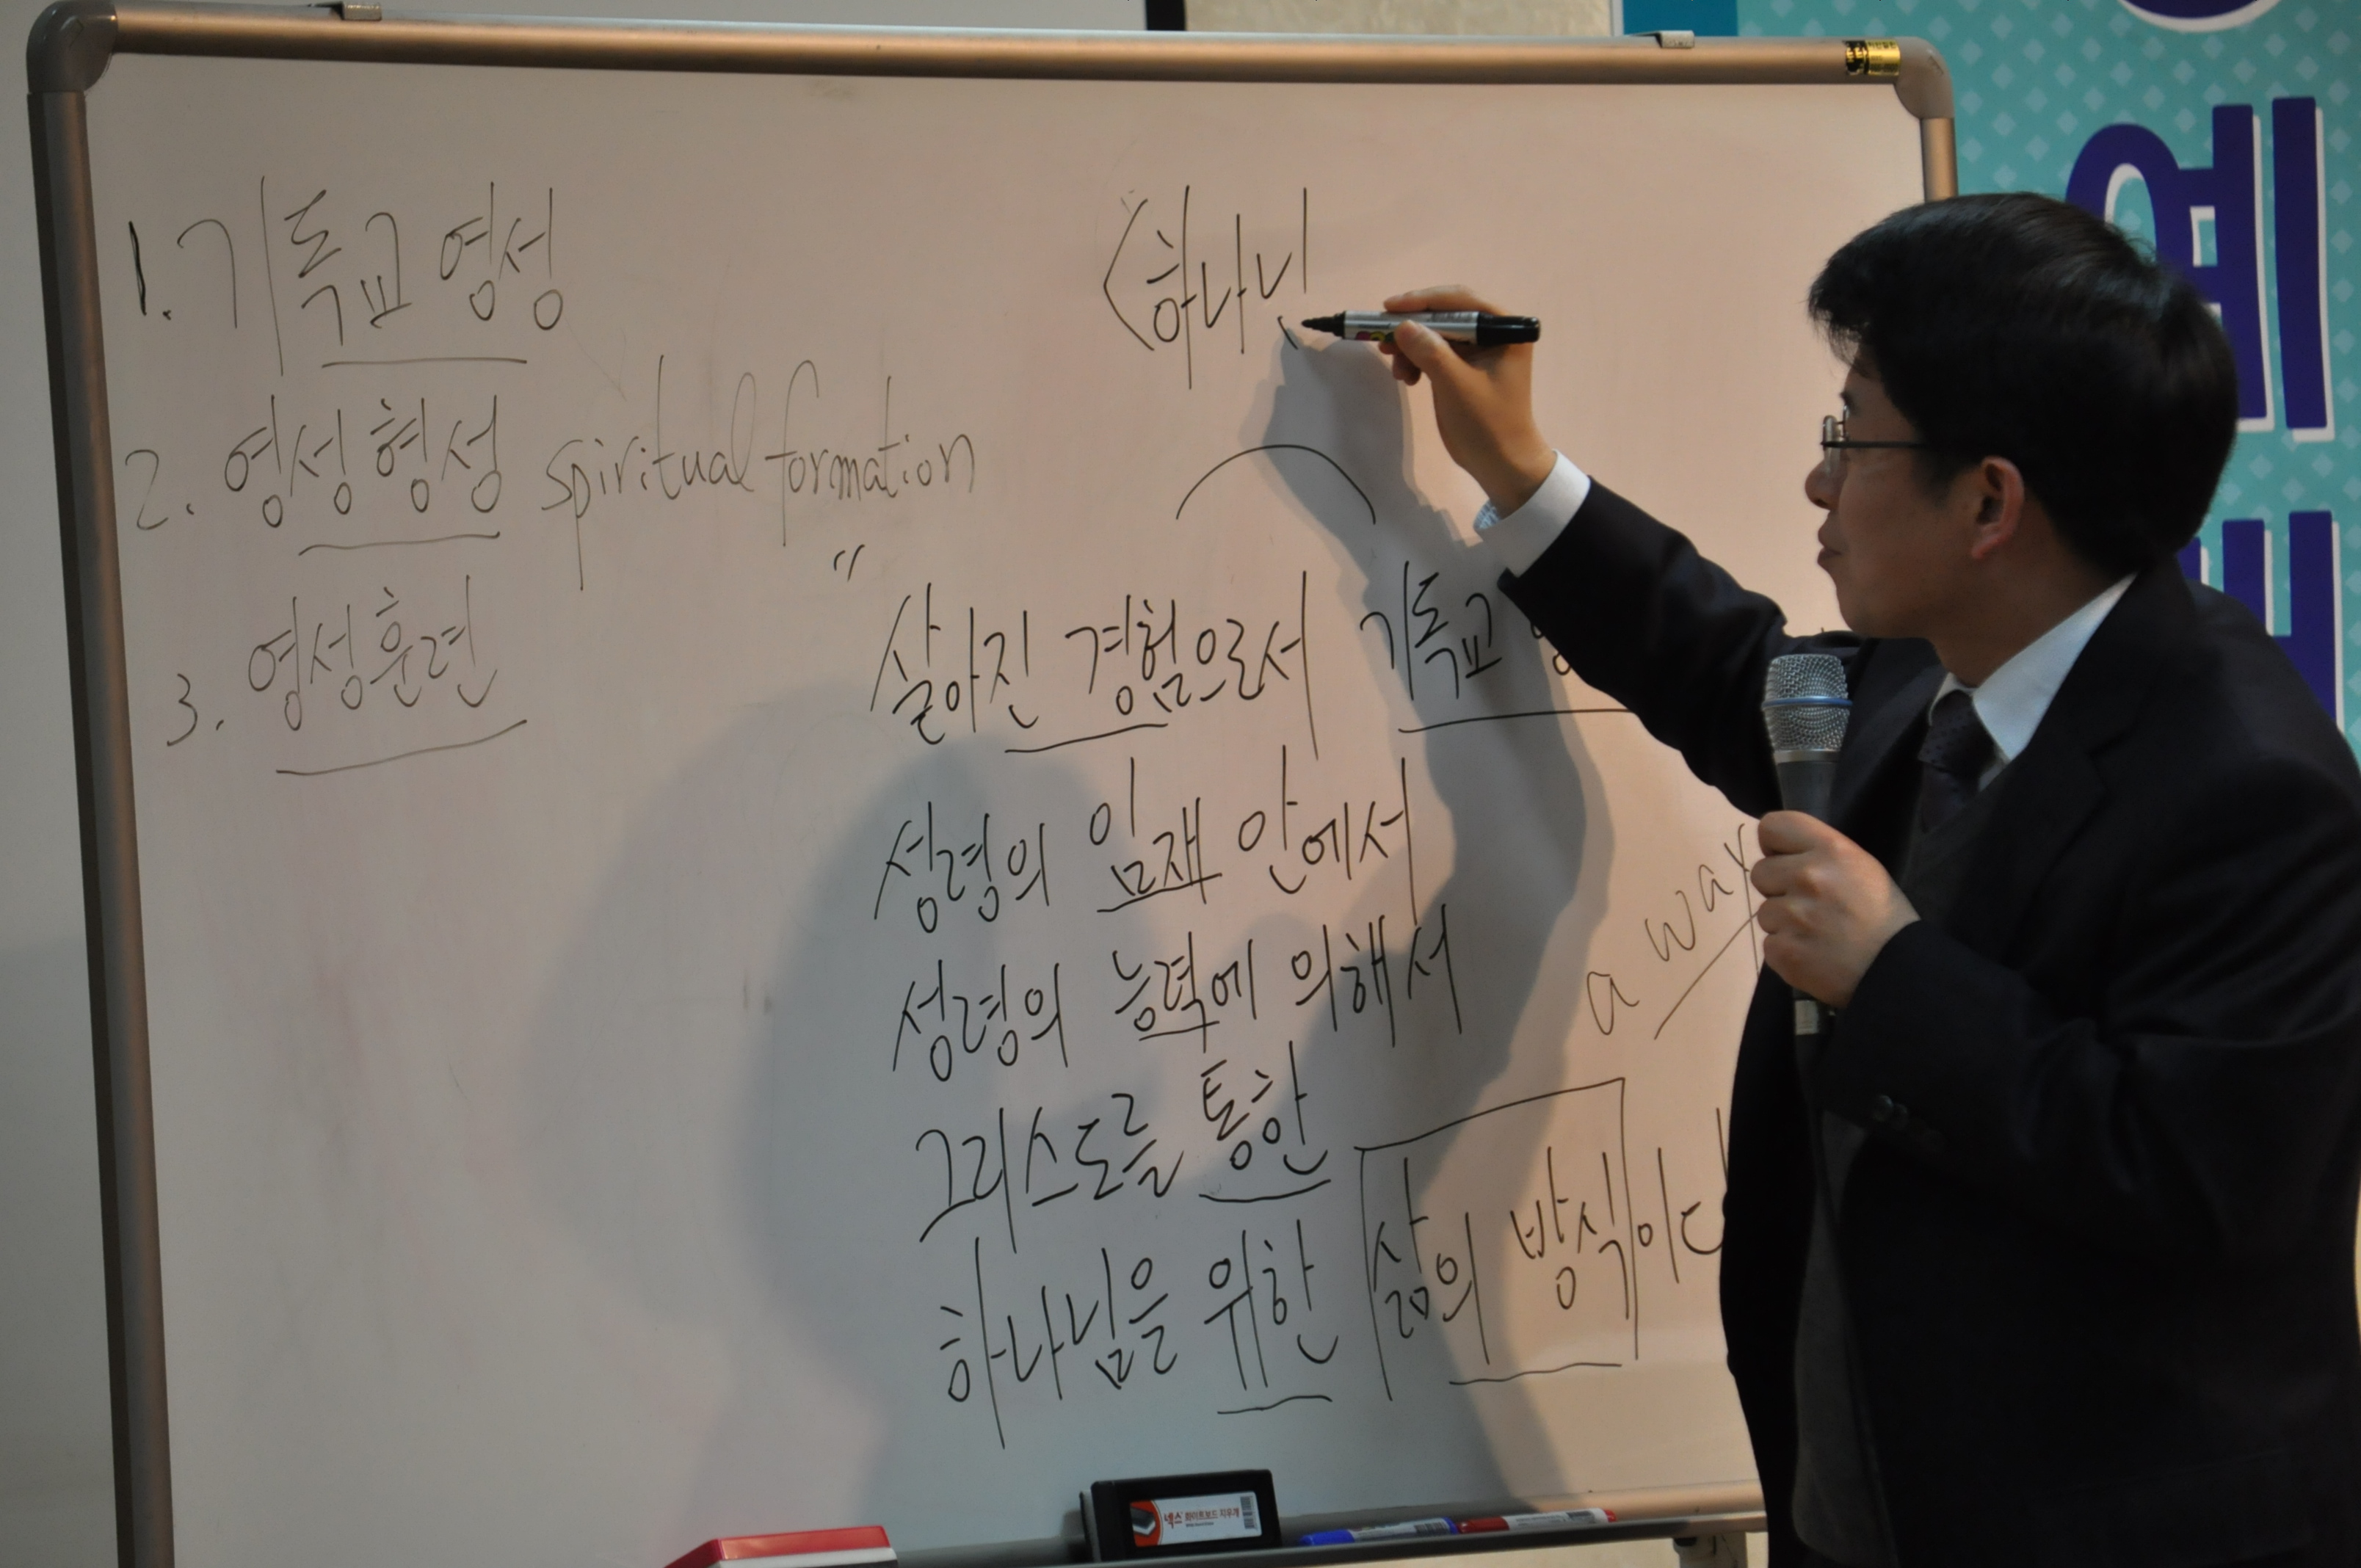 1. 기독교 영성
2. 영성 형성 spiritual formation
3. 영성훈련
<하나니
"살아진 경험으로서 기독교
성령의 임재 안에서
성령의 능력에 의해서
그리스도를 통한
하나님을 위한 삶의 방식이다
a way
예
넥스 화이트보드 지우개